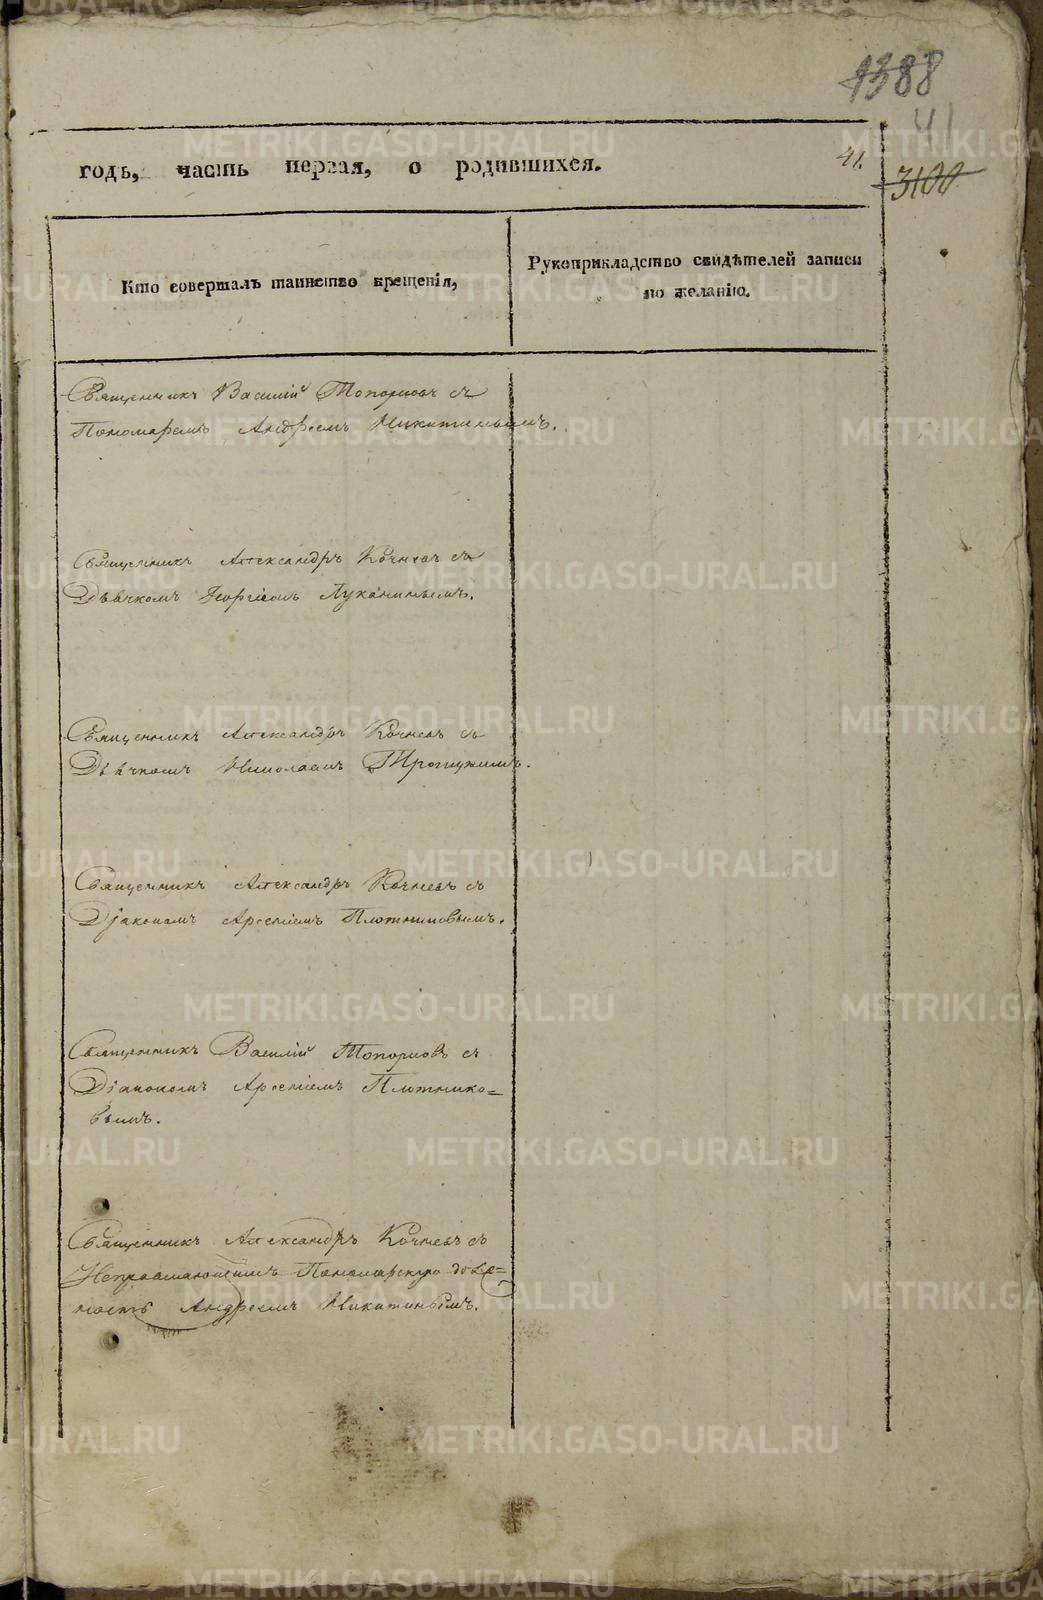 1388
41
годъ, часть первая, о родившихся.
41.
3100
Кто совершалъ таинство крещенія,
Рукоприкладство свидѣтелей записи
по желанію.
Священникъ Василій Топорковъ съ
Пономаремъ Андреемъ Никитинымъ.
Священникъ Александръ Кочневъ съ
Дьячкомъ Георгіемъ Луканинымъ.
Священникъ Александръ Кочневъ съ
Дьячкомъ Николаемъ
Священникъ Александръ Кочневъ съ
Діакономъ Арсеніемъ Плотниковымъ.
Священникъ Василій Топорковъ съ
Діакономъ Арсеніемъ Плотнико=
вымъ.
Священникъ Александръ Кочневъ съ
Пономарскую долж=
ность Андреемъ Никитинымъ.
METRIKI.GASO-URAL.RU